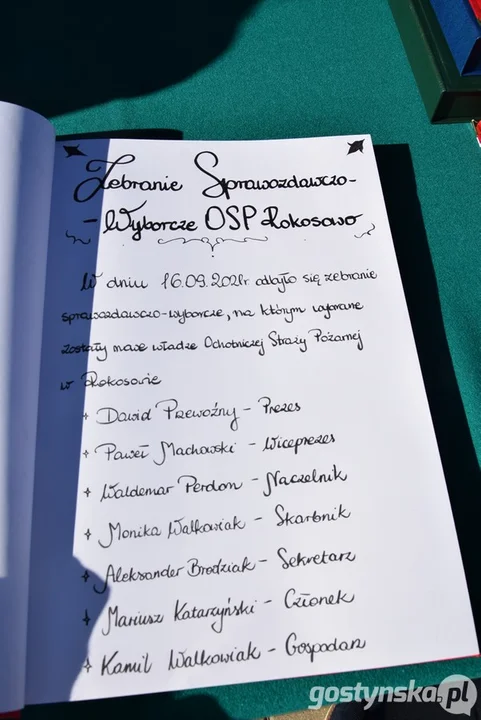 Zebranie Sprawozdawczo-
- Wyborcze OSP Rokosowo
W dniu 16.09.2021r. odbyło się zebranie
sprawozdawczo-wyborcze, na którym wybrane
zostały nowe władze Ochotniczej Straży Pożarnej
w Rokosowie
+ Dawid Przewoźny - Prezes
+ Paweł Machowski - Wiceprezes
+ Waldemar Perdon - Naczelnik
+ Monika Walkowiak - Skarbnik
+ Aleksander Brodziak - Sekretarz
+ Mariusz Katarzyński - Członek
+ Kamil Walkowiak - Gospodarz
gostynska.pl